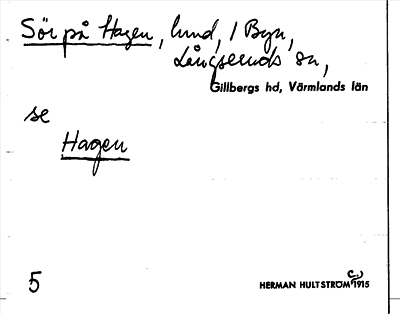 Sör på Hagen, lund, / Byn,
Långseruds sn,
Gillbergs hd, Värmlands län
se
Hagen
5
HERMAN HULTSTRÖM (c.) 1915